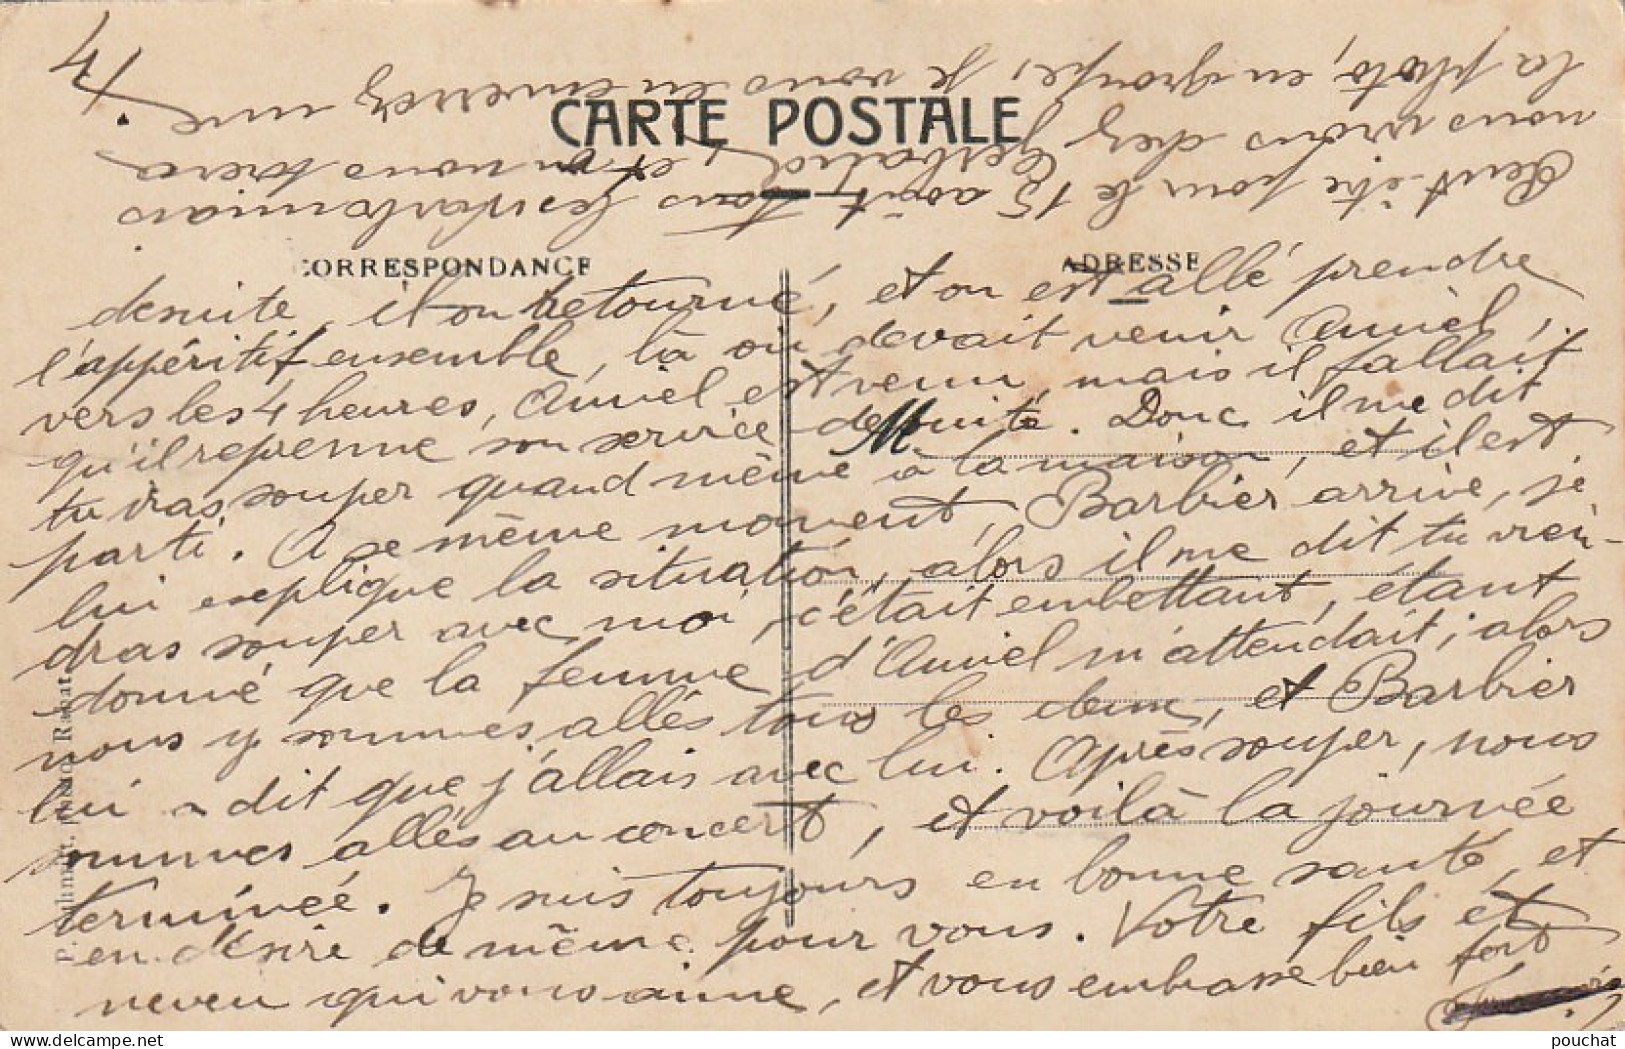 CARTE POSTALE
CORRESPONDANCE
ADRESSE
desuite, il on retourné, et on est allé prendre
l'appéritif ensemble, là où devait venir Amiel,
vers les 4 heures, Amiel est venu, mais il fallait
qu'il reprenne son service desuite. Donc il me dit
M
tu iras souper quand même à la maison, et il est
parti. A se même moment, Barbier arrive, je
lui explique la situation, alors il me dit tu vien-
dras souper avec moi, c'était embettant, étant
donné que la femme d'Amiel m'attendait; alors
nous y sommes allés tous les deux, et Barbier
lui a dit que j'allais avec lui. Après souper, nous
sommes allés au concert, et voilà la journée
terminée. Je suis toujours en bonne santé, et
en désire de même pour vous. Votre fils et
neveu qui vous aime, et vous embrasse bien fort
Peut-être pour le 15 août tous les
nous irons chez Gerbaud, et on nous tirera
la photo, en groupe, je vous en enverrez une.
pouchat